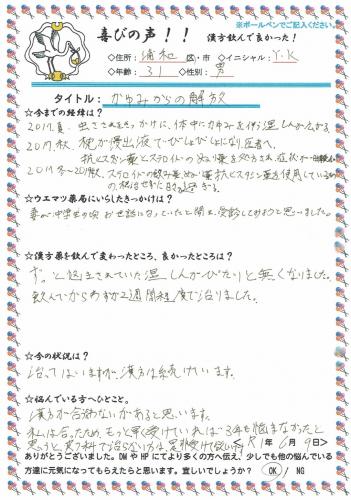 ※ボールペンでご記入ください。
喜びの声!! 漢方飲んで良かった!
◇住所: 浦和 区・市 ◇イニシャル: Y.K
◇年齢: 31 ◇性別: 男
タイトル: かゆみからの解放
☆今までの経緯は?
2017.夏. 虫さされをきっかけに、体中にかゆみを伴う湿しんが広がる。
2017.秋. 腕が浸出液でびしょびしょになり、医者へ。
抗ヒスタミン薬とステロイドのぬり薬を処方され、症状が一時
ステロイドの飲み薬、ぬり薬、抗ヒスタミン薬を使用している
☆ウエマツ薬局にいらしたきっかけは?
妻が中学生の頃お世話になっていたと聞き、受診してみようと思いました。
☆漢方薬を飲んで変わったところ、良かったところは?
ずっと悩まされていた湿しんがぴたりと無くなりました。
飲んでからわずか2週間程度で治りました。
☆今の状況は?
治ってはいますが、漢方は続けています。
☆悩んでいる方へひとこと。
漢方が合わない方があると思います。
私は合ったため、もっと早く受けていれば3年も悩まなかったと
思うと、皮フ科で治らない方は是非受けて欲しい
<R1年6月9日>
ありがとうございました。DMやHPにてより多くの方へ伝え、少しでも他の悩んでいる
方達に元気になってもらえたらと思います。宜しいでしょうか? OK / NG